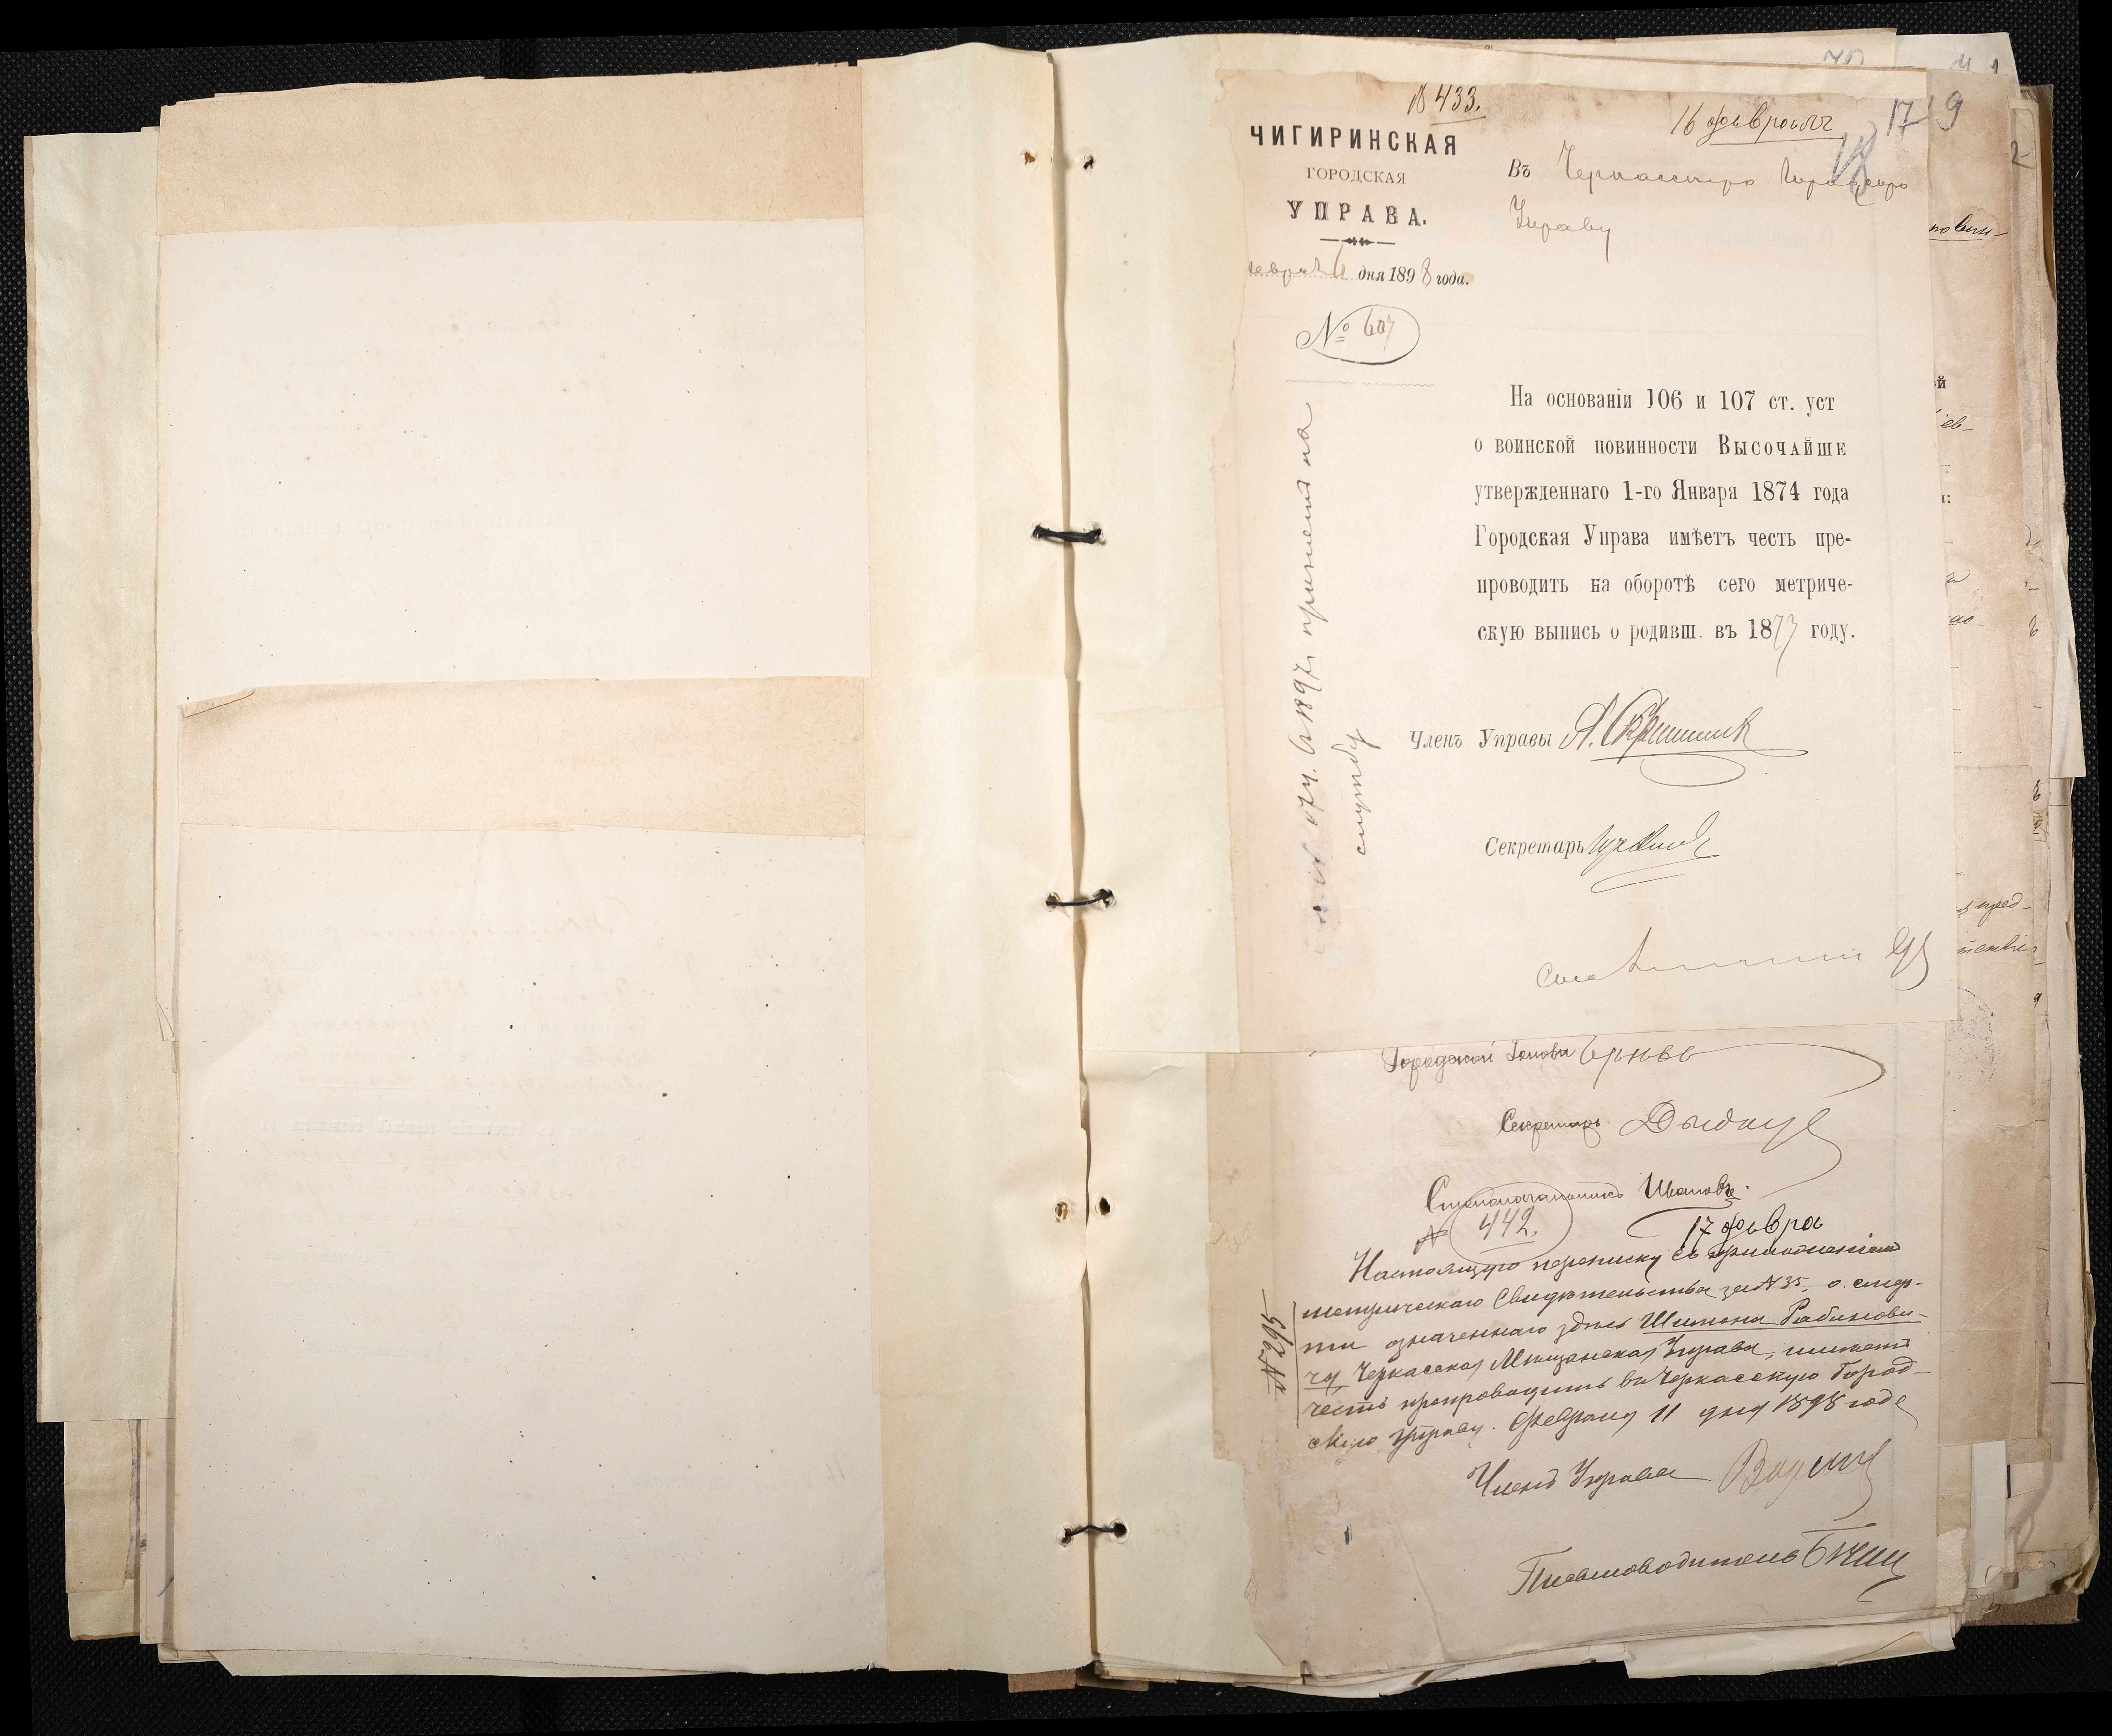 № 433.
16 февраля
17 9
ЧИГИРИНСКАЯ
ГОРОДСКАЯ
УПРАВА.
Въ Черкасскую Городскую
Управу
дня 1898 года.
№ 607
На основаніи 106 и 107 ст. уст
о воинской повинности Высочайше
утвержденнаго 1-го Января 1874 года
Городская Управа имѣетъ честь пре-
проводить на оборотѣ сего метриче-
скую выпись о родивш. въ 1877 году.
1897 г. принятъ на
службу
Членъ Управы
Секретарь
Городской Голова
Секретарь
Столоначальникъ Ивановъ.
№ 442.
17 февра
Настоящую переписку съ приложеніемъ
метрическаго Свидѣтельства за № 35, о смер-
ти означеннаго здѣсь Шимона Рабинови-
ча Черкасская Мѣщанская Управа, имѣетъ
честь препроводить въ Черкасскую Город-
скую Управу. Февраля 11 дня 1898 года
№ 295
Членъ Управы
Письмоводитель